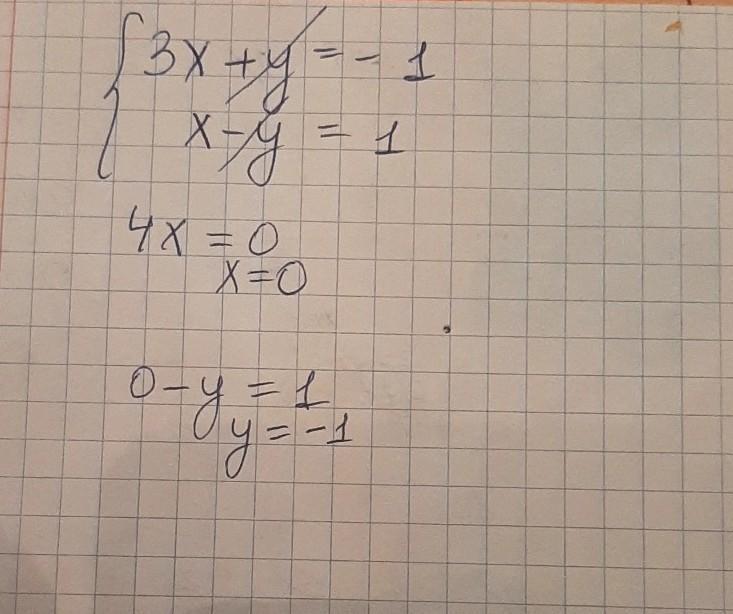 3x + y = - 1
x - y = 1
4x = 0
x = 0
0 - y = 1
y = -1